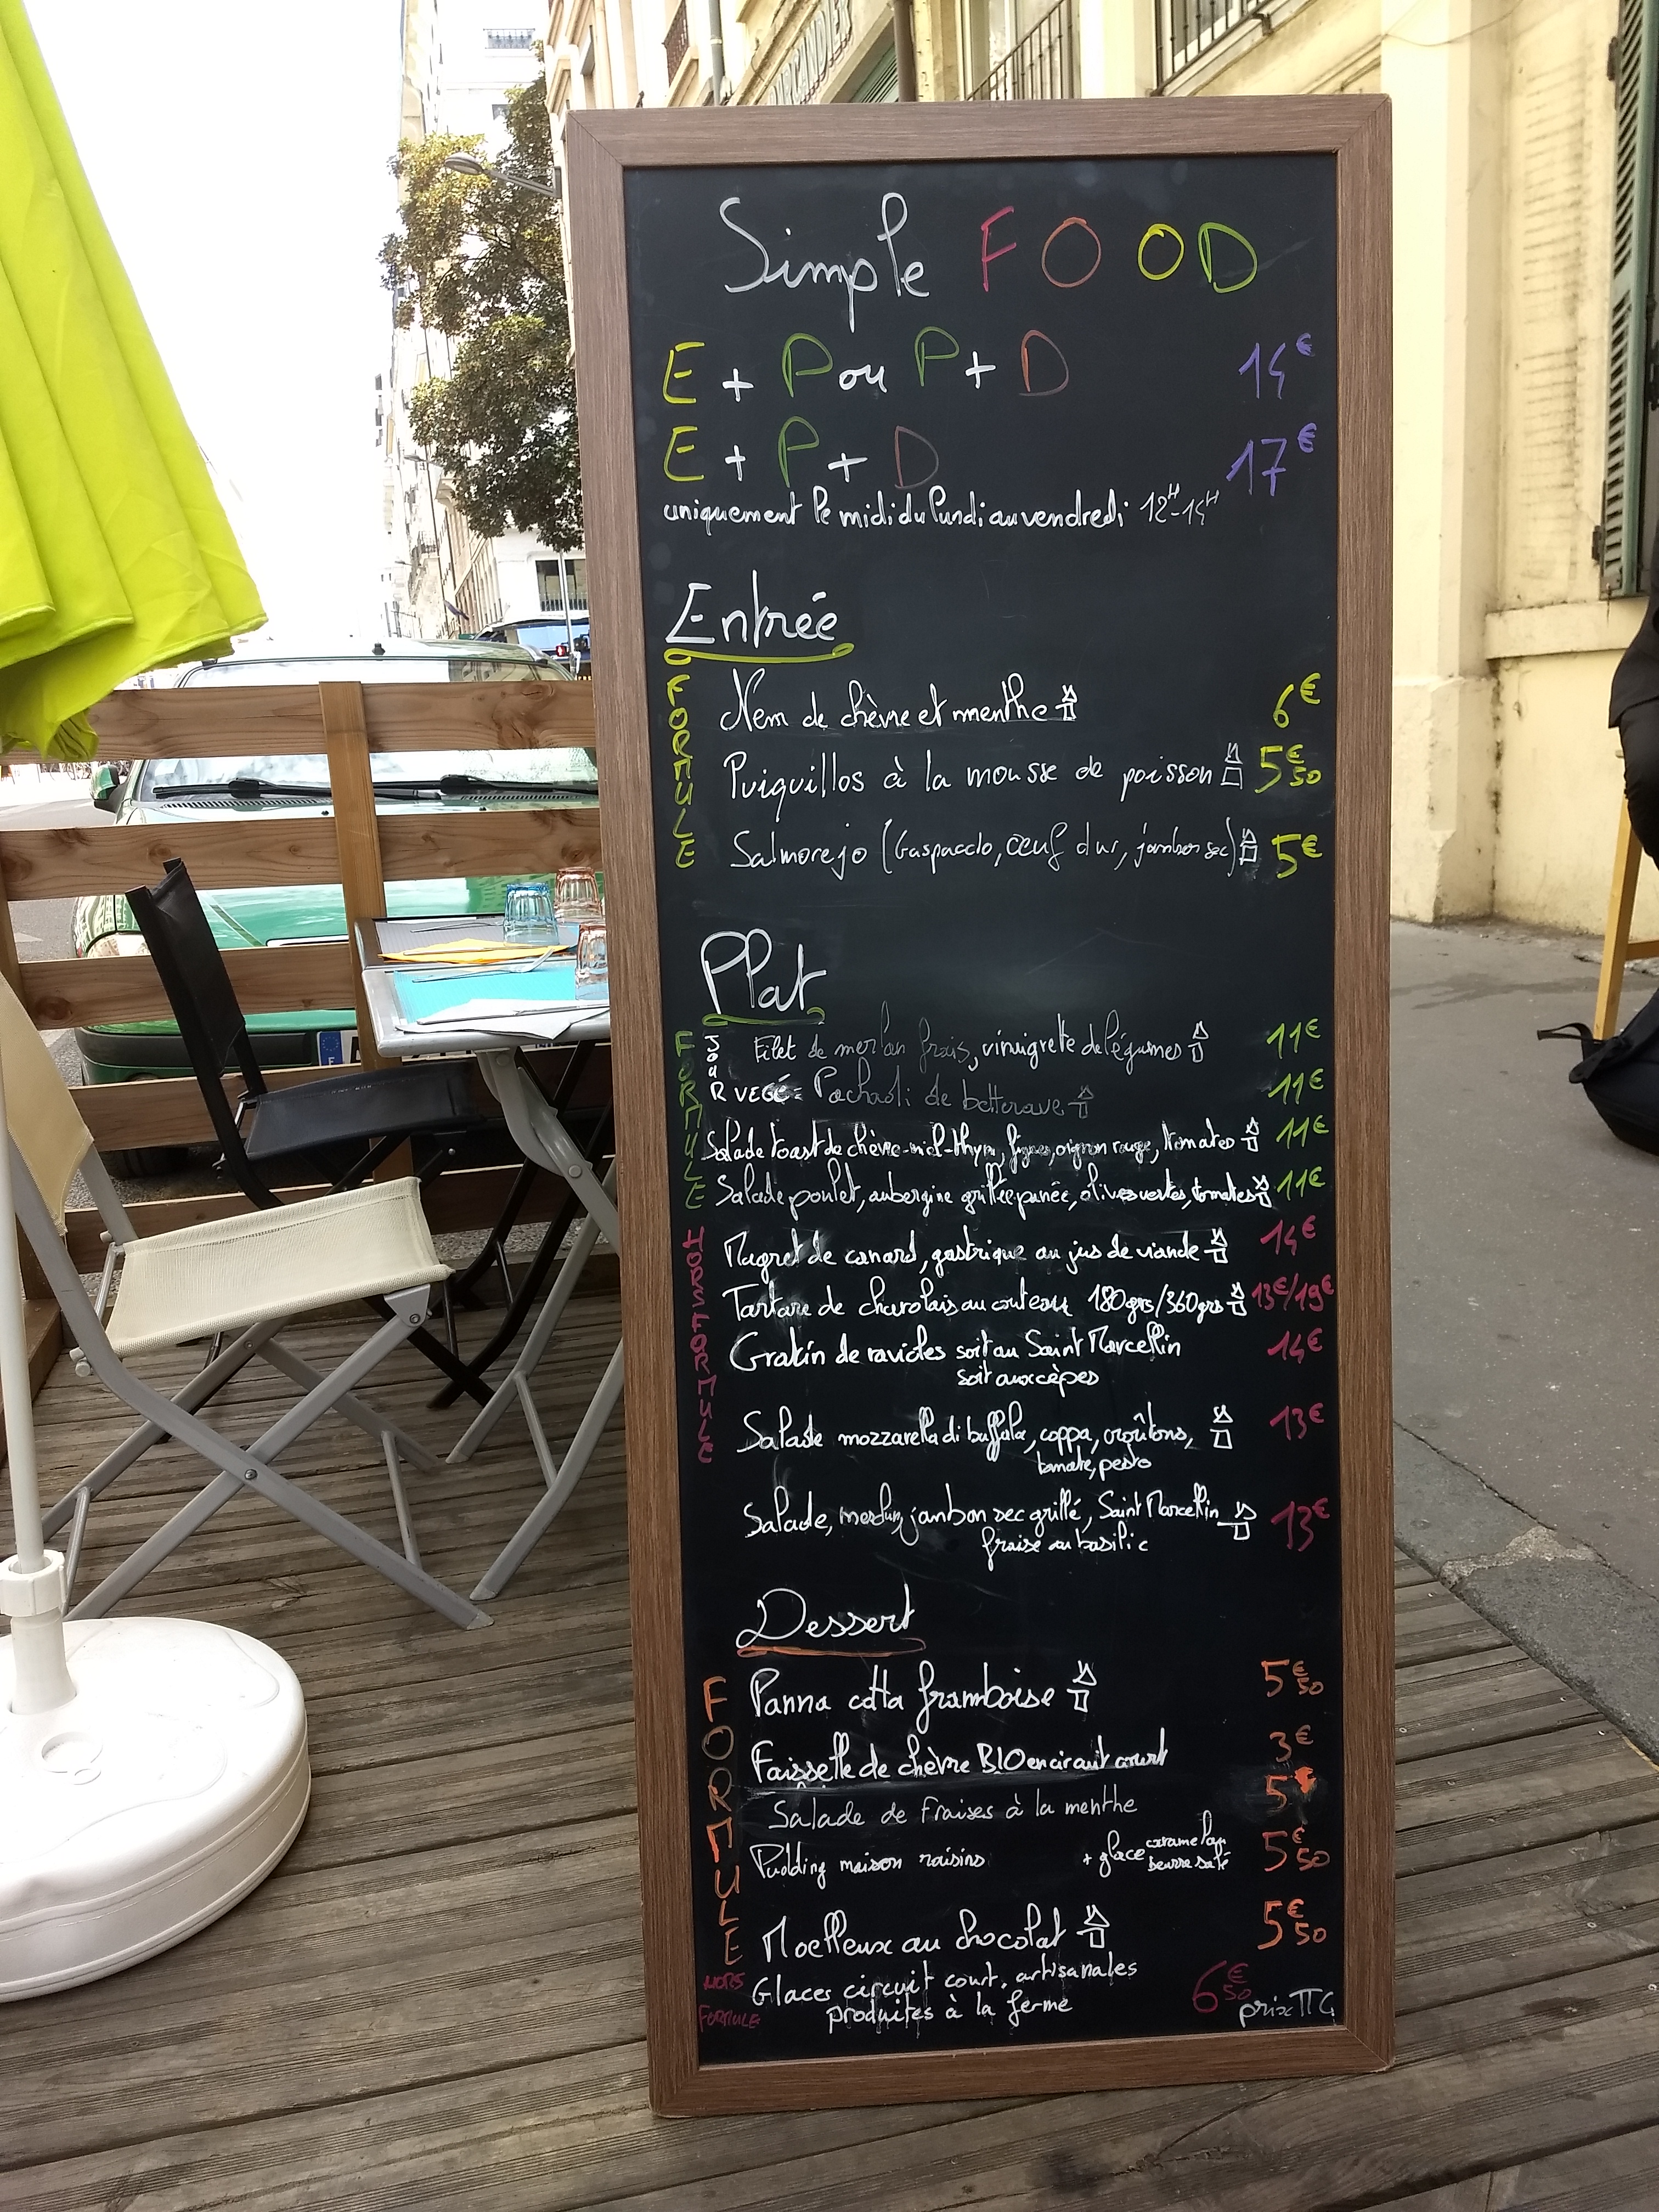 Simple FOOD
E + P ou P + D 14€
E + P + D 17€
uniquement le midi du lundi au vendredi 12H-14H
Entrée
FORMULE
Nem de chèvre et menthe 6€
Puiquillos à la mousse de poisson 5€50
Salmorejo (Gaspacclo, œuf dur, jambon sec) 5€
Plat
FORMULE
JOUR
Filet de merlan frais, vinuigrette de légumes 11€
VEGÉ= Pachadi de betterave 11€
Salade toast de chèvre-miel-thym, figues, oignon rouge, tomates 11€
Salade poulet, aubergine grillée panée, olives vertes, tomates 11€
HORS FORMULE
Magret de canard, gastrique au jus de viande 14€
Tartare de charolais au couteau 180grs/360grs 13€/19€
Gratin de ravioles soit au Saint Marcellin 14€
soit aux cèpes
Salade mozzarella di buffala, coppa, croûtons, 13€
tomate, pesto
Salade, jambon sec grillé, Saint Marcellin 13€
fraise au basilic
Dessert
FORMULE
Panna cotta framboise 5€50
Faisselle de chèvre BIO en circuit court 3€
Salade de fraises à la menthe 5€
Pudding maison raisins + glace caramel au beurre salé 5€50
Moelleux au chocolat 5€50
HORS FORMULE
Glaces circuit court, artisanales
produites à la ferme 6€50
prix TTC